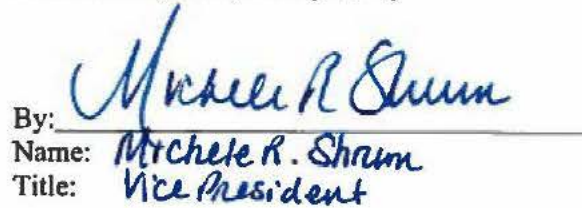 By: Michele R Shrum
Name: Michele R. Shrum
Title: Vice President